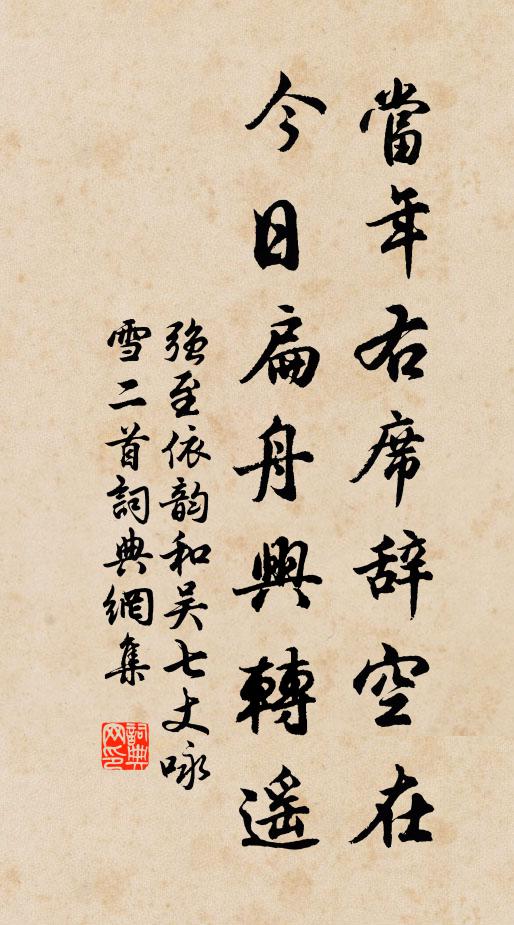 當年右席辞空在
今日扁舟興轉遥
強至依韵和吴七丈咏
雪二首詞典網集
詞典
网印